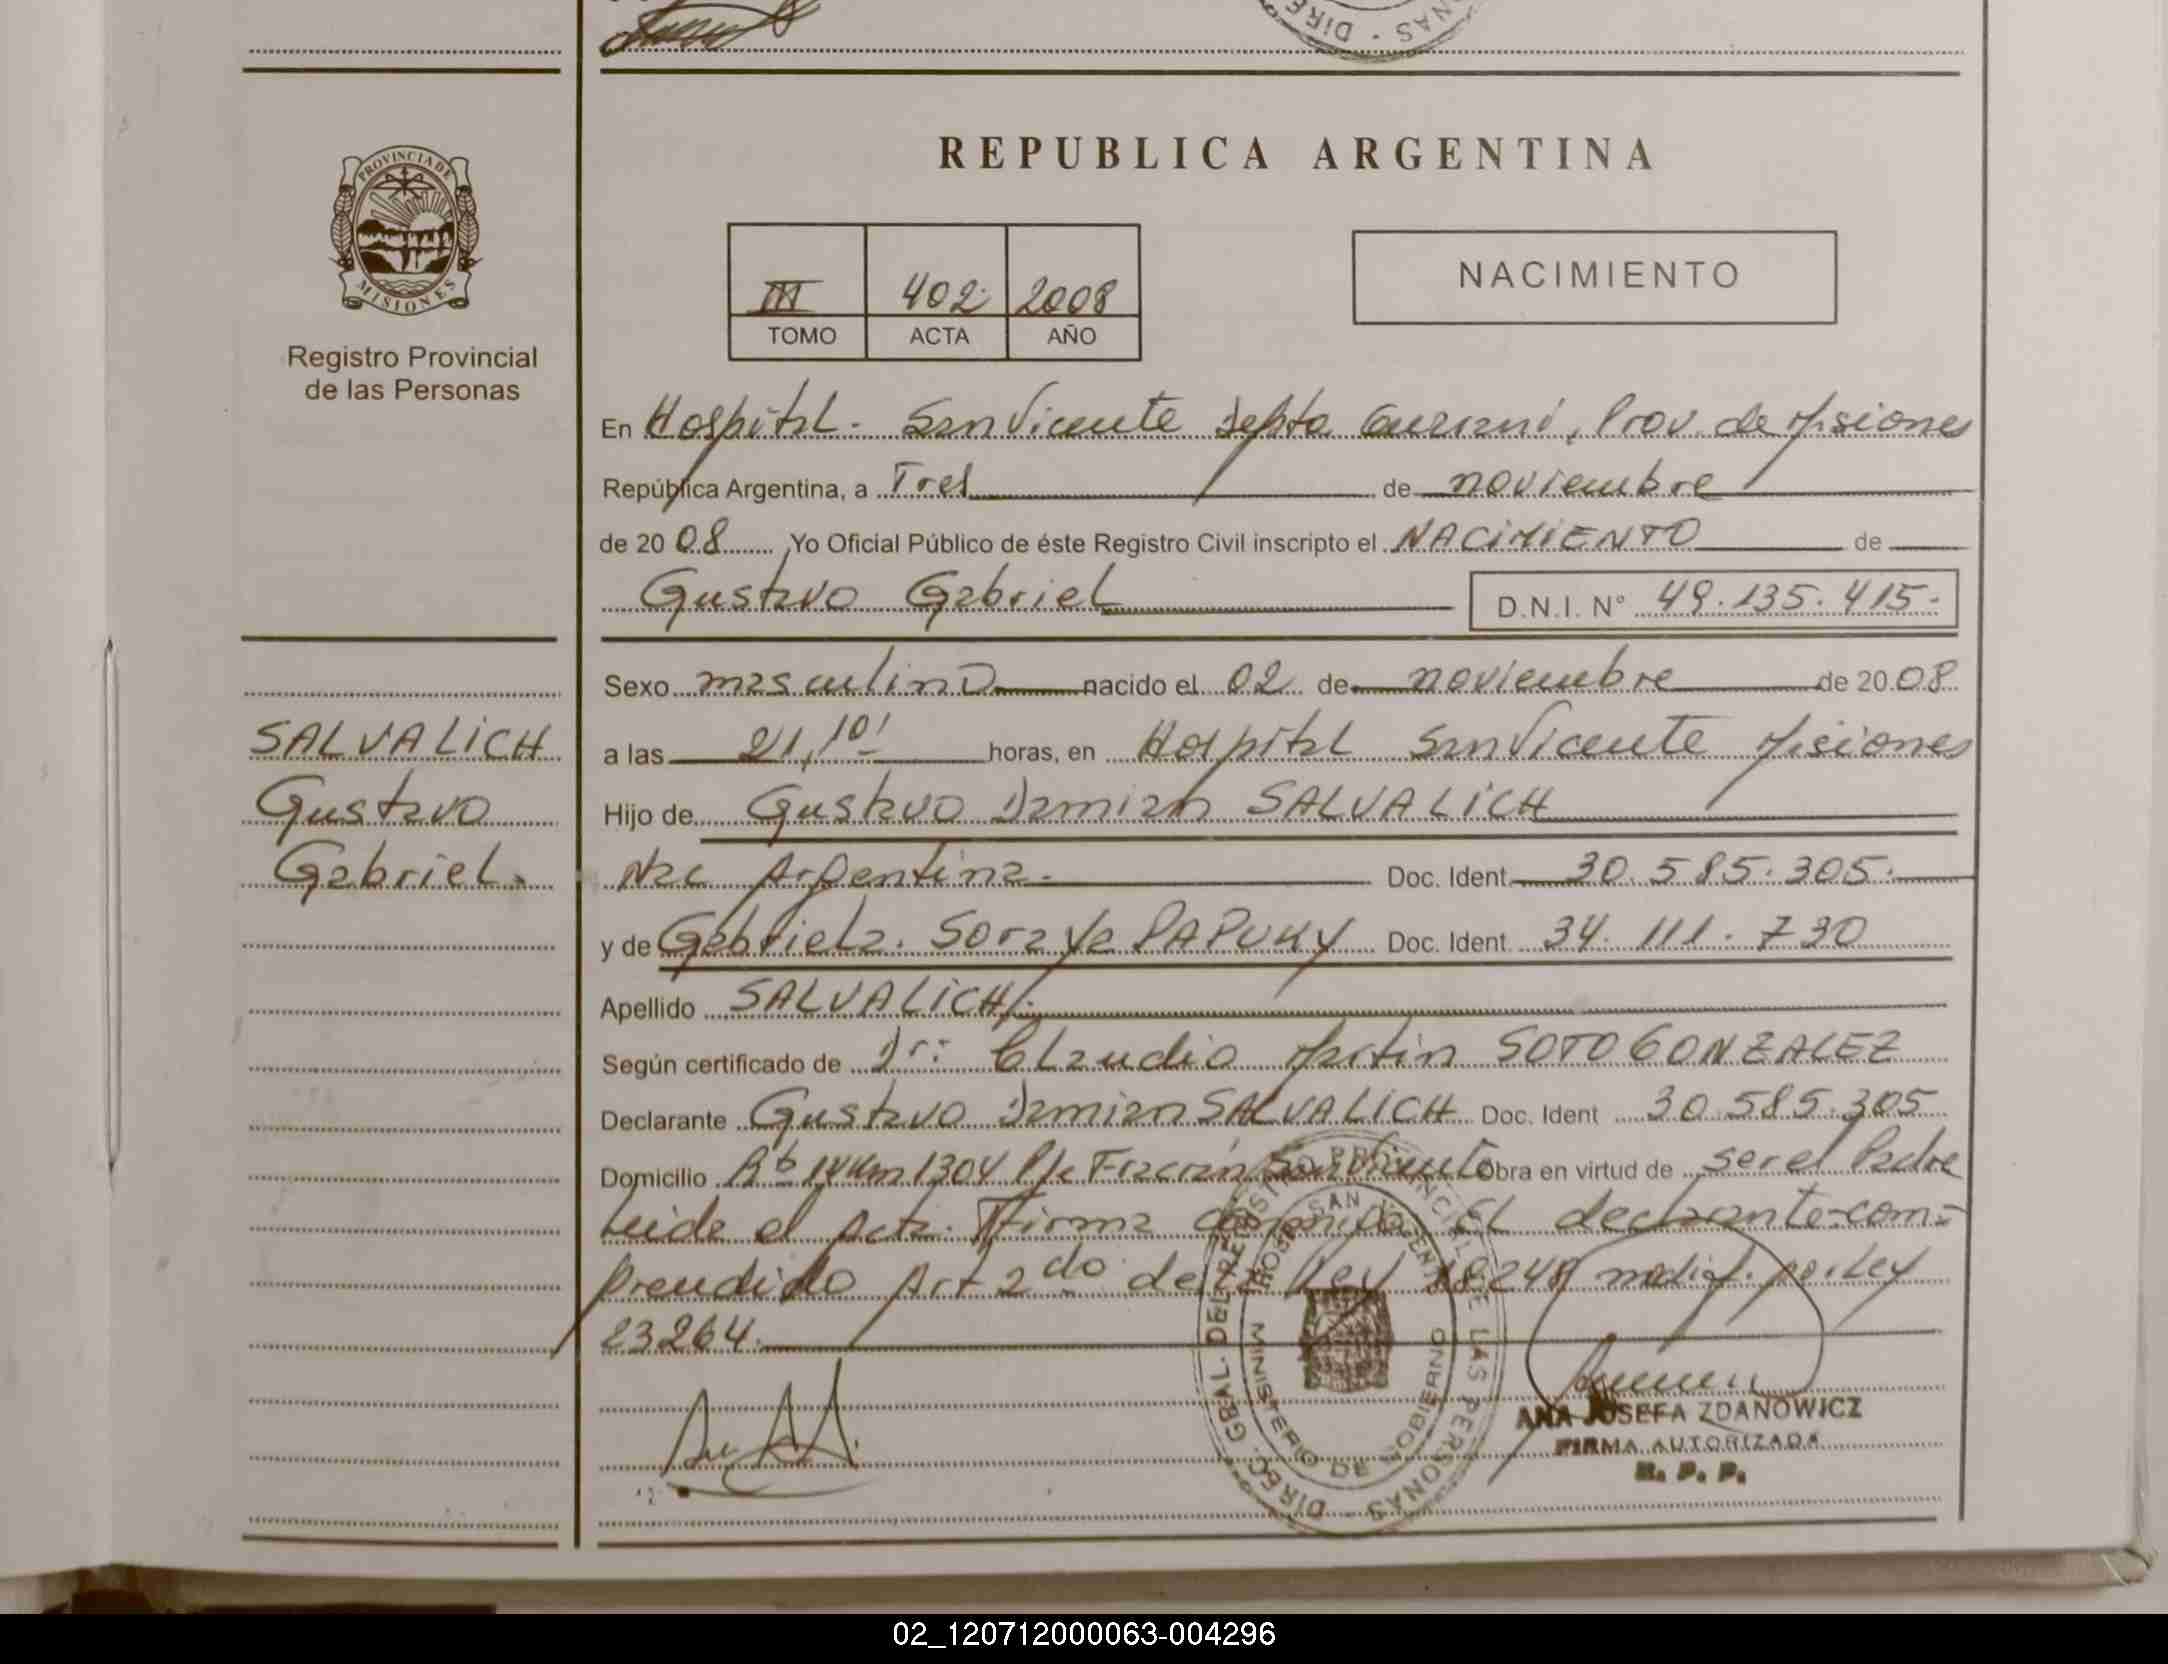 DIREC
NAS
PROVINCIA DE
MISIONES
Registro Provincial
de las Personas
REPUBLICA ARGENTINA
III 402 2008
TOMO ACTA AÑO
NACIMIENTO
En Hospital. San Vicente Depto Guarani, Prov. de Misiones
República Argentina, a Tres de noviembre
de 2008 Yo Oficial Público de éste Registro Civil inscripto el NACIMIENTO de
Gustavo Gabriel D.N.I. N° 49.135.415.
Sexo masculino nacido el 02 de noviembre de 2008
SALVALICH
Gustavo
Gabriel.
a las 21,10' horas, en Hospital San Vicente Misiones
Hijo de Gustavo Damian SALVALICH
Nac Argentina. Doc. Ident 30.585.305.
y de Gabriela. Soraya PAPUKY Doc. Ident 34.111.730
Apellido SALVALICH
Según certificado de Dr: Claudio Martin SOTO GONZALEZ
Declarante Gustavo Damian SALVALICH Doc. Ident 30.585.305
Domicilio Rta 14 Km 1304 Pje Fracran San Vicente Obra en virtud de ser el Padre
Leida el Acta. Firma conmigo El declarante com-
prendido Art 2do de la Ley 18248 modif. por Ley
23264.
DIREC. GRAL. DEL REGISTRO PROVINCIAL DE LAS PERSONAS
HOSP. SAN VICENTE
MINISTERIO DE GOBIERNO
ANA JOSEFA ZDANOWICZ
FIRMA AUTORIZADA
R. P. P.
02_120712000063-004296